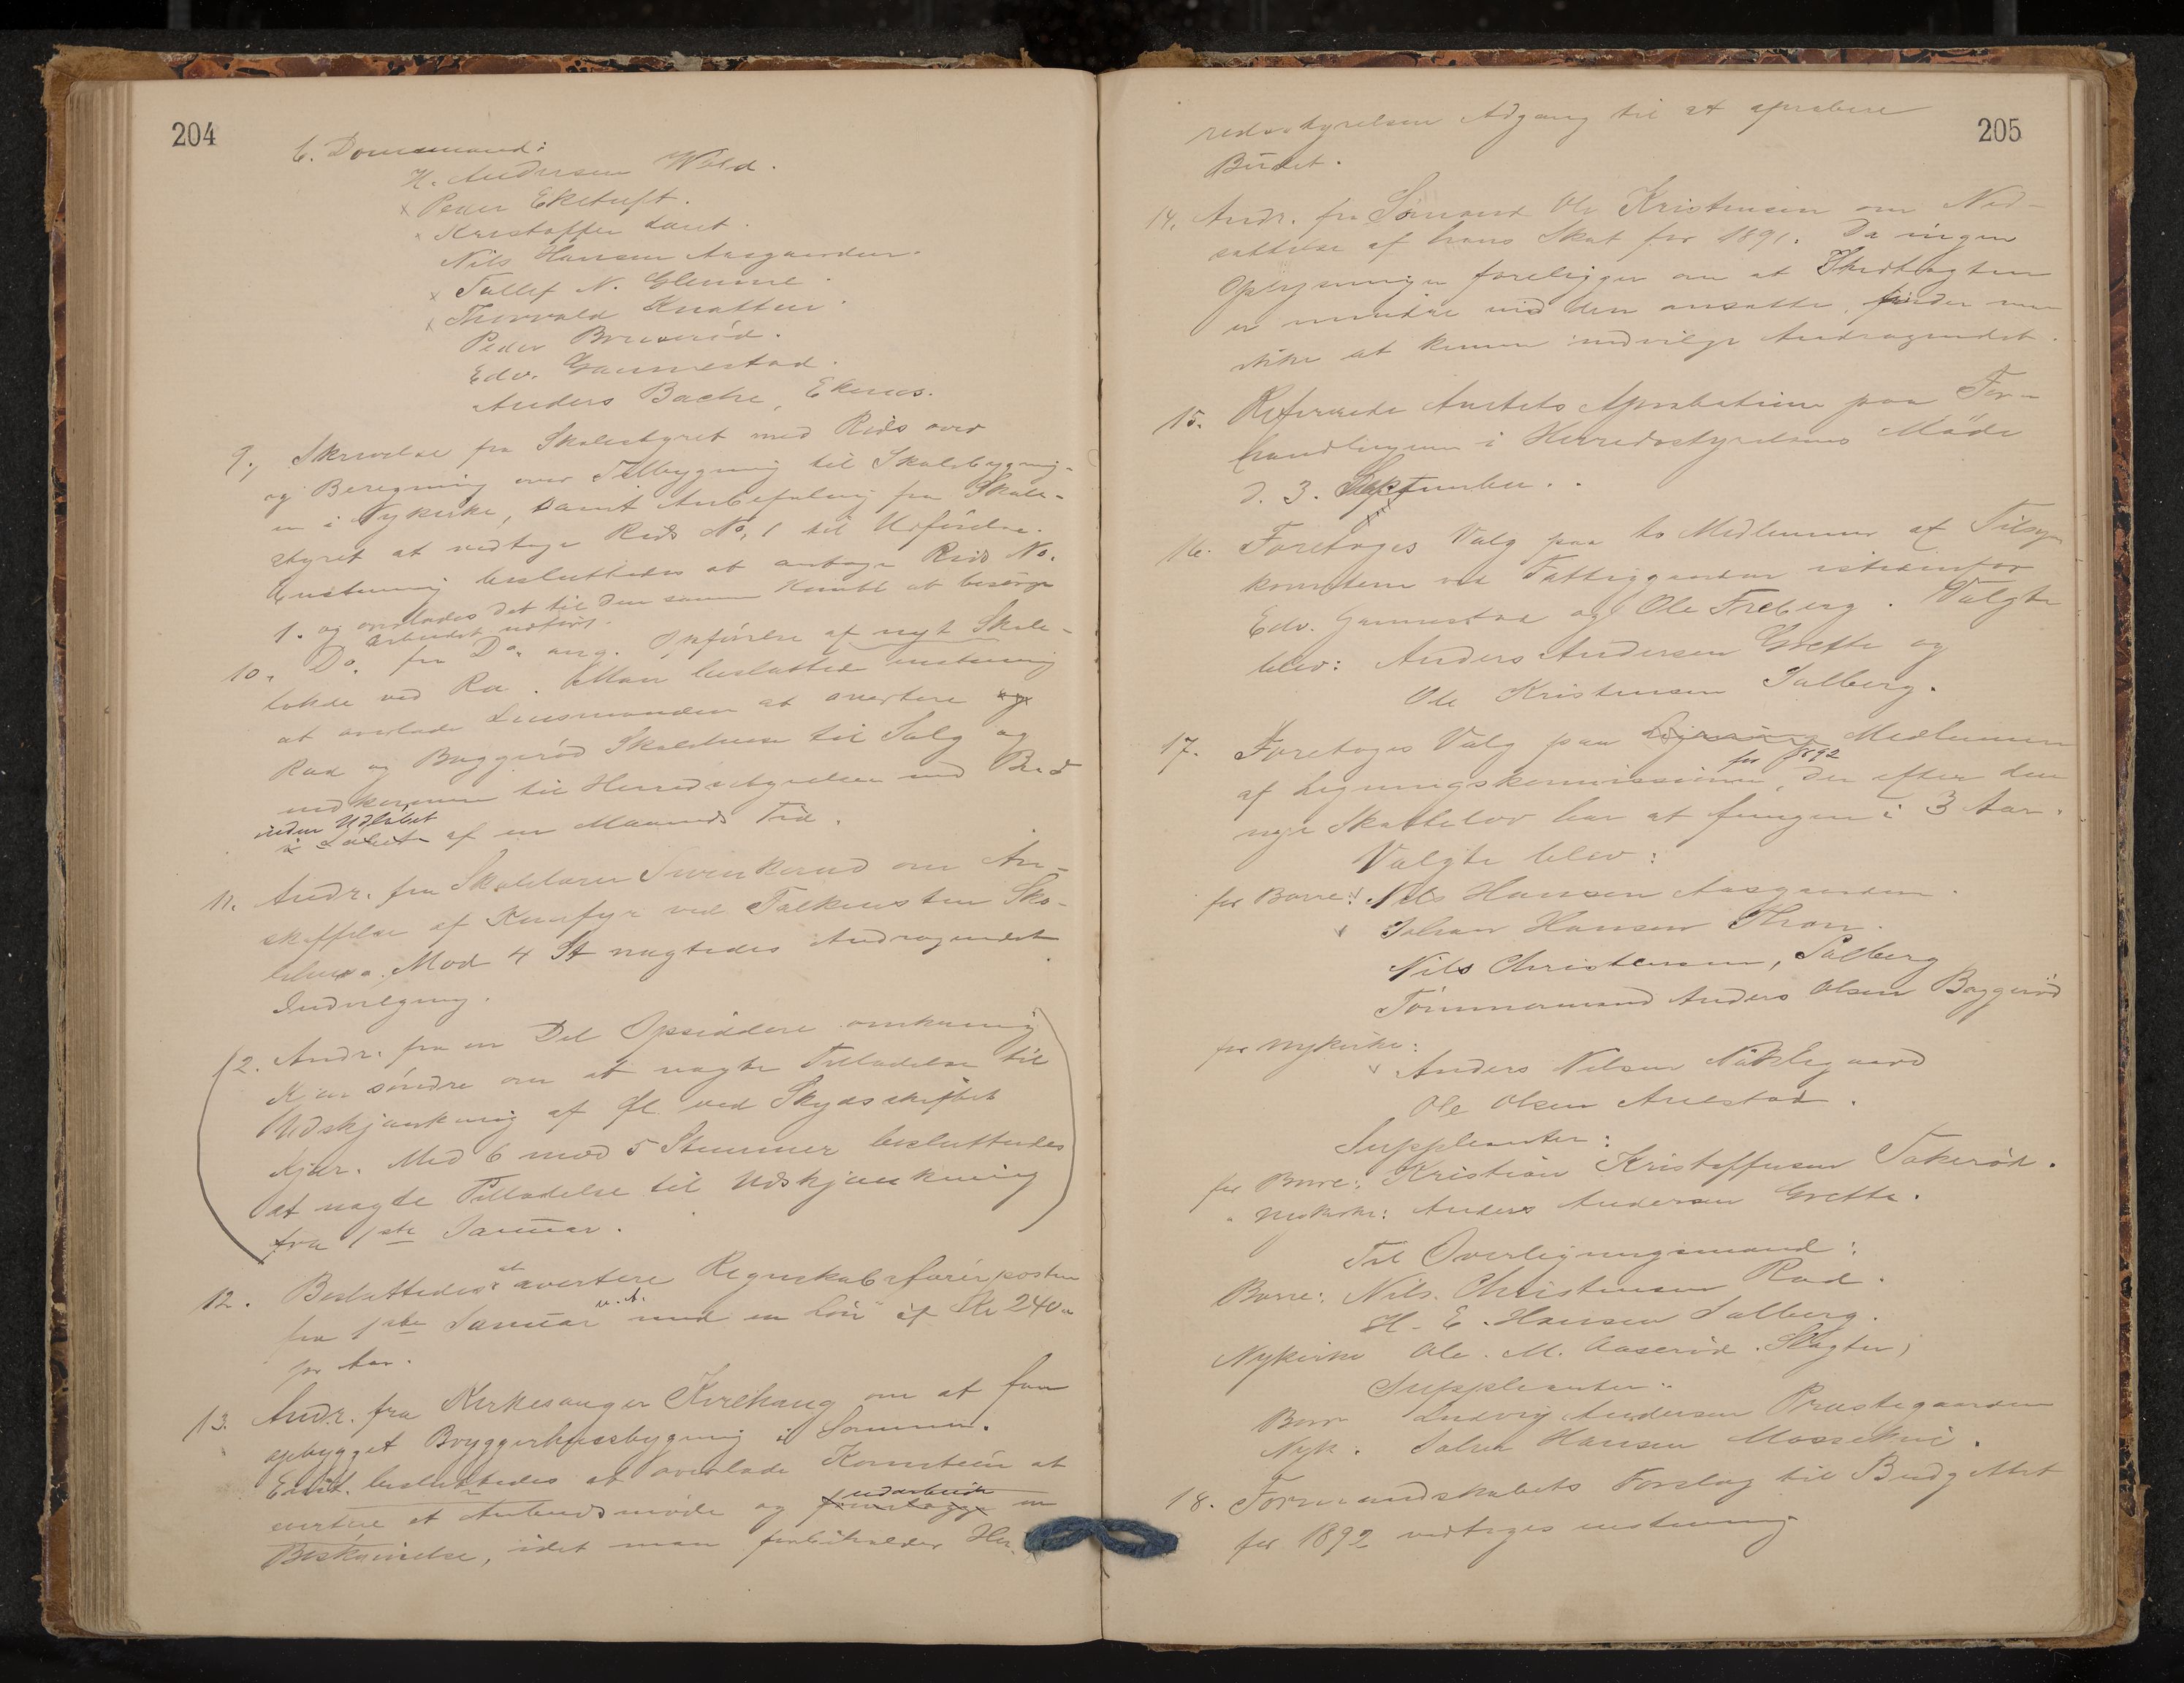 204
C. Domsmænd:
H. Andersen Wold.
x Peder Eketuft.
x Kristoffer
Nils Hansen Aasgaarden.
x Tallef N. Glenne.
x Thorvald Knatten.
Peder Bruserød.
Edv. Gannestad.
Anders Bache, Ekenes.
9., Skrivelse fra Skolestyret med Rids over
og Beregning over Tilbygning til Skolebygning-
en i Nykirke, samt Anbefaling fra Skole-
styret at vedtage Rids No. 1 til Udførelse.
Enstemmig besluttedes at antage Rids No.
1. og overlades det til den samme Komité at besørge
Arbeidet udført.
10. Do. fra Do. ang. Opførelse af nyt Skole-
lokale ved Ra. Man besluttede enstemmig
at overlade Lensmanden at avertere og
Rad og Baggerød Skolehuse til Salg og
indkomme til Herredsstyrelsen med Bud
inden Udløbet
i Løbet af en Maaneds Tid.
11. Andr. fra Skolelærer Svenkerud om An-
skaffelse af Komfyr ved Falkensten Sko-
lehus. Mod 4 St nægtedes Andragendet
Indvilgning.
12. Andr. fra en Del Opsiddere omkring
Kjær søndre om at nægte Tilladelse til
Udskjænkning af Øl ved Skydsskiftet
Kjær. Med 6 mod 5 Stemmer besluttedes
at nægte Tilladelse til Udskjænkning
fra 1ste Januar.
12. Besluttedes at avertere Regnskabsførerposten
fra 1ste Januar n. A. med en Løn af Kr 240
pr Aar.
13. Andr. fra Kirkesanger Kirkhaug om at faa
opbygget Bryggerhusbygning i Sommer.
Enst. besluttedes at overlade Komiteen at
avertere et Anbudsmøde og udarbeide en
Beskrivelse, idet man forbeholder Her-
205
redsstyrelsen Adgang til at aprobere
Budet.
14. Andr. fra Sømand Ole Kristensen om Ned-
sættelse af hans Skat for 1891. Da ingen
Oplysninger foreligger om at Indtægten
er mindre end den ansatte, finder man
ikke at kunne indvilge Andragendet.
15. Refererede Amtets Aprobation paa For-
handlingerne i Herredsstyrelsens Møde
d. 3. September.
16. Foretoges Valg paa to Medlemmer af Tilsyns
komiteen ved Fattiggaarden istedenfor
Edv. Gannestad og Ole Freberg. Valgte
blev: Anders Andersen Grette og
Ole Kristensen Solberg.
17. Foretoges Valg paa Ligning Medlemmer
af Ligningskommissionen for 1892, der efter den
nye Skattelov har at fungere i 3 Aar.
Valgte blev:
for Borre: Nils Hansen Aasgaarden.
Johan Hansen Thron.
Nils Christensen, Solberg
Tømmermand Anders Olsen Baggerød
for Nykirke:
Anders Nilsen Nøklegaard
Ole Olsen Aulestad.
Suppleanter:
for Borre: Kristian Kristoffersen Takerød.
" Nykirke: Anders Andersen Grette.
Til Overligningsmænd:
Borre: Nils Christensen Rad.
H. E. Hansen Solberg.
Nykirke Ole. M. Aaserød. Slagter,
Suppleanter:
Borre Ludvig Andersen Præstegaarden
Nyk. Johan Hansen Massekvi.
18. Formandskabets Forslag til Budgettet
for 1892 vedtoges enstemmig